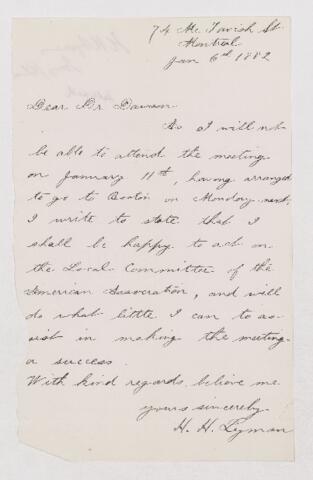 74 Mc Tavish St
Montreal
Jan 6th 1882
Dear Dr Dawson
As I will not
be able to attend the meeting
on January 11th, having arranged
to go to Boston on Monday next,
I write to state that I
shall be happy to act on
the Local Committee of the
American Association, and will
do what little I can to as-
sist in making the meeting
a success.
With kind regards, believe me
yours sincerely
H. H. Lyman